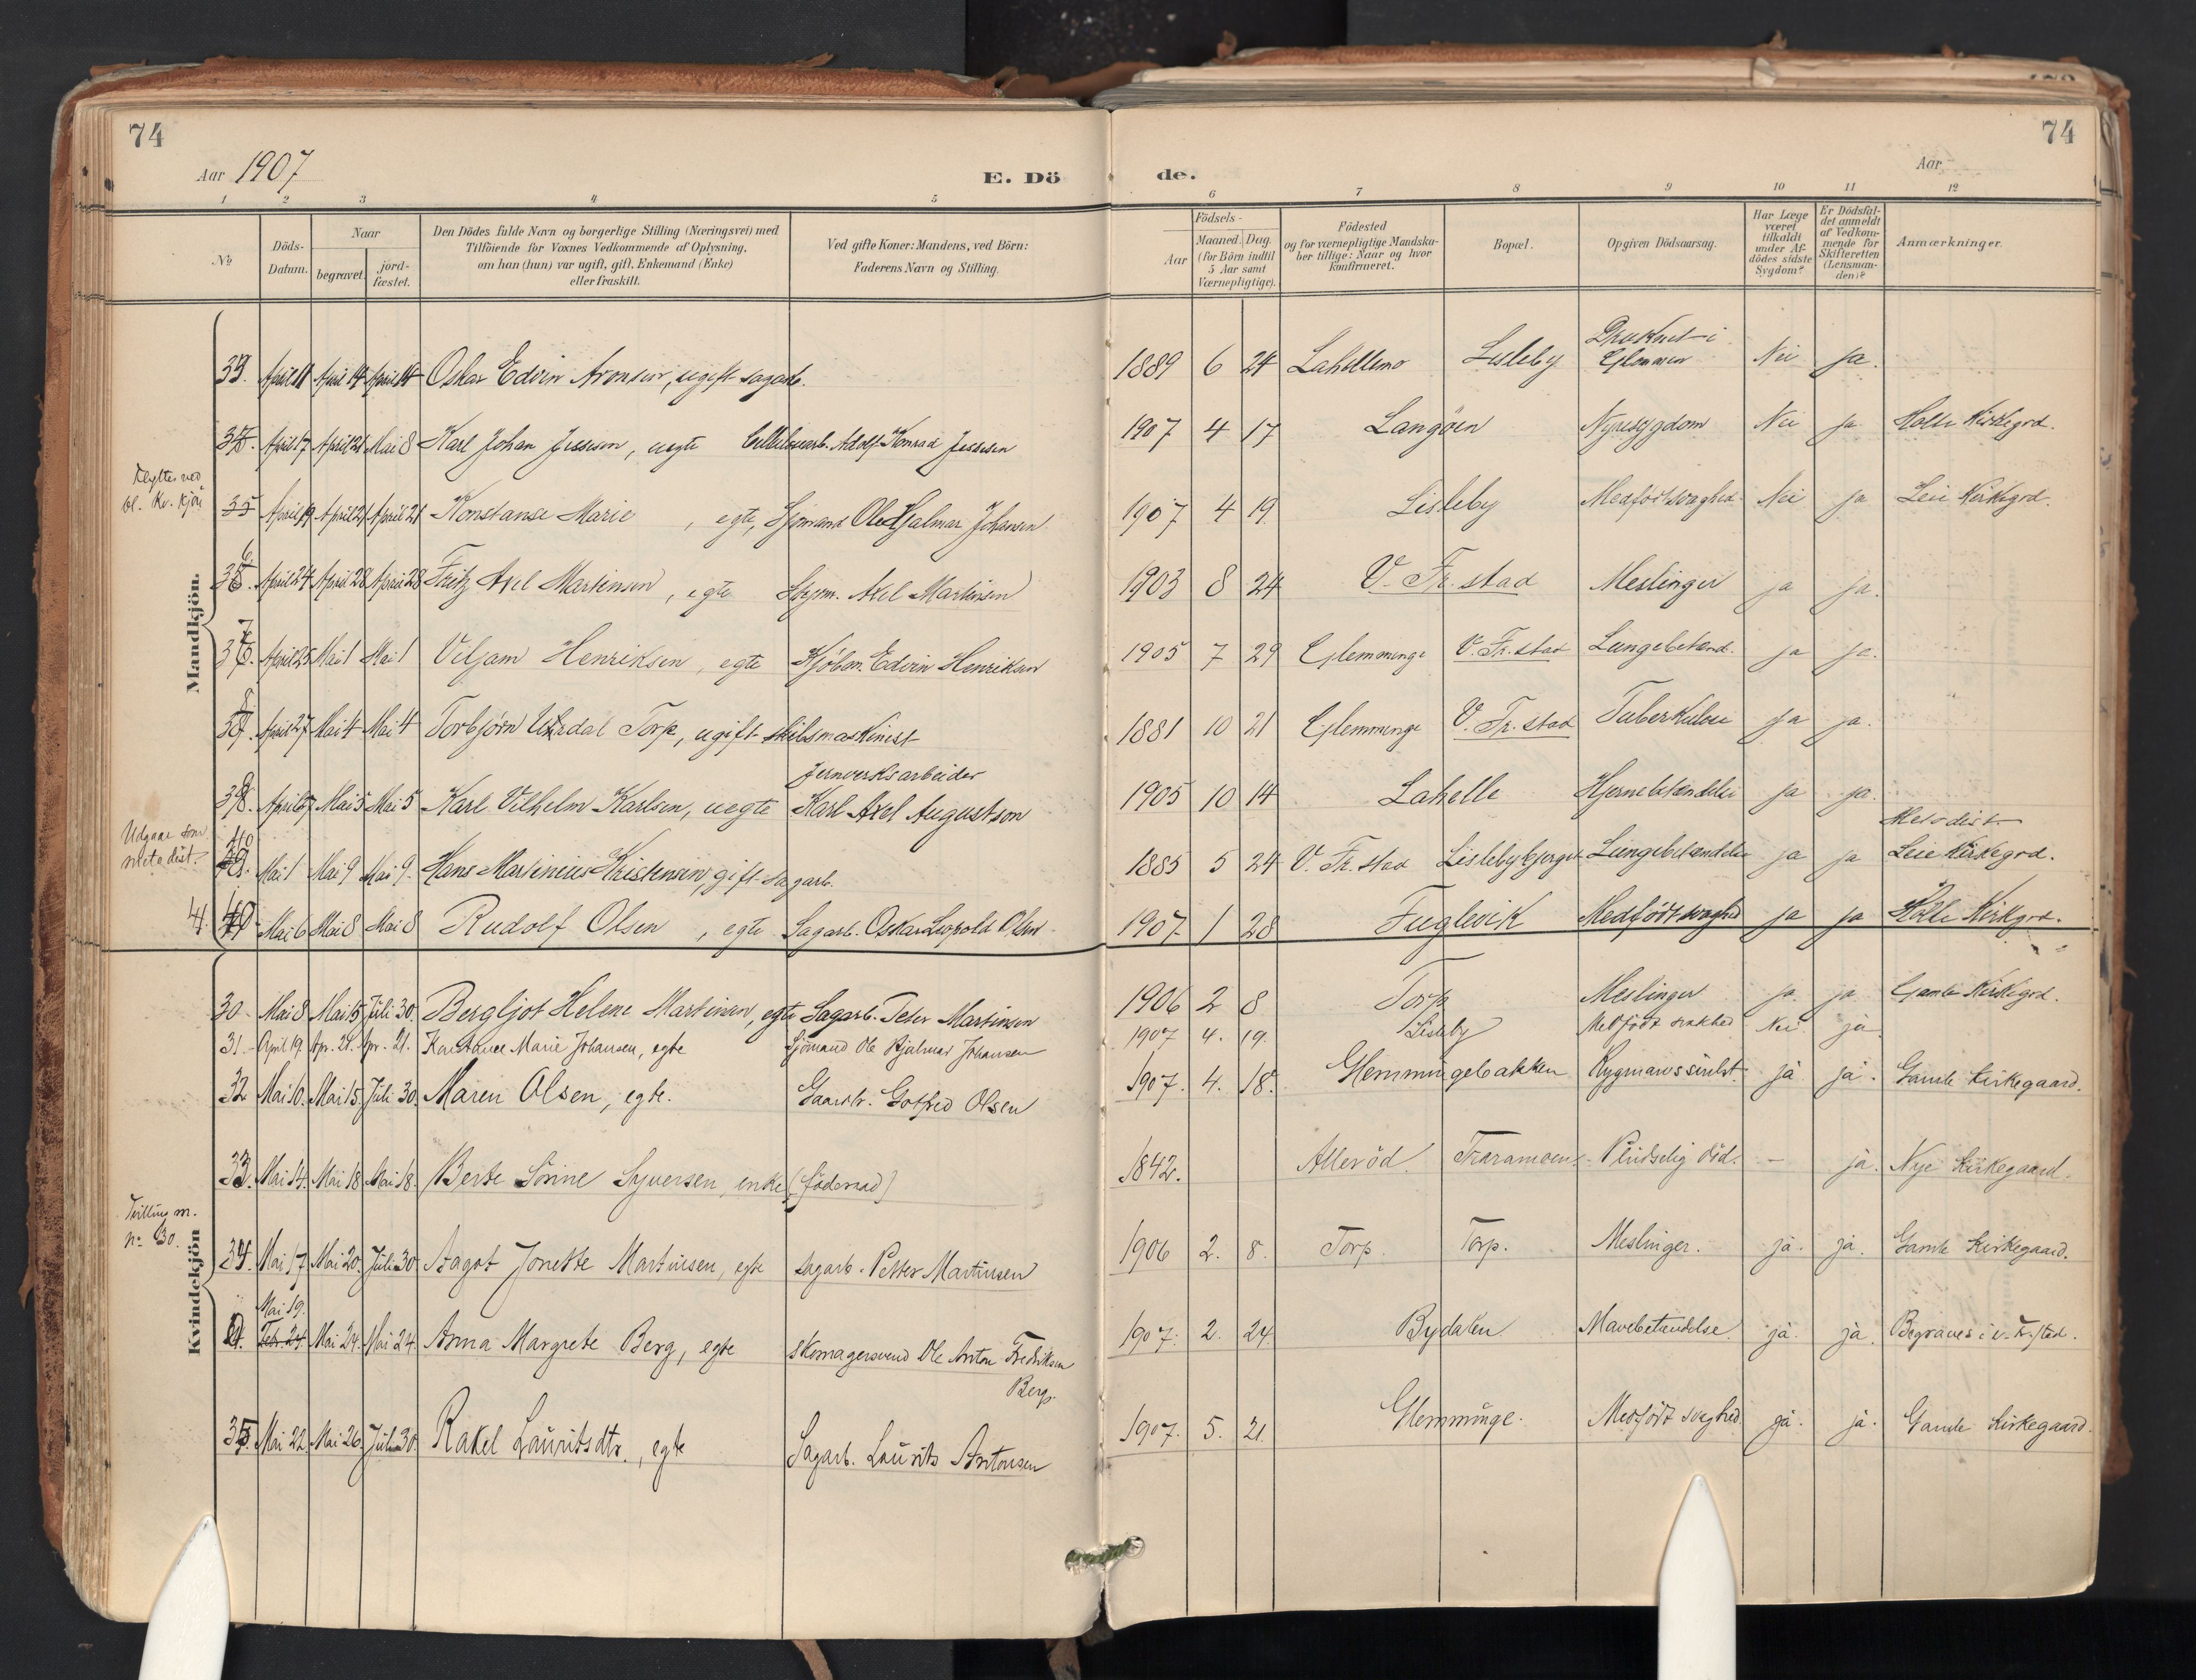 74
74
Aar 1907
E. Dö de.
Aar
1 2 3 4 5 6 7 8 9 10 11 12
No
Döds-Datum.
Naar
begravet.
jord-fæstet.
Den Dödes fulde Navn og borgerlige Stilling (Næringsvei) med
Tilföiende for Voxnes Vedkommende af Oplysning,
om han (hun) var ugift, gift, Enkemand (Enke)
eller fraskilt.
Ved gifte Koner: Mandens, ved Börn:
Faderens Navn og Stilling.
Födsels-
Aar
Maaned. Dag.
(for Börn indtil
5 Aar samt
Værnepligtige).
Födested
og for værnepligtige Mandska-
ber tillige: Naar og hvor
konfirmeret.
Bopæl.
Opgiven Dödsaarsag.
Har Læge
været
tilkaldt
under Af-
dödes sidste
Sygdom?
Er Dödsfal-
det anmeldt
af Vedkom-
mende for
Skifteretten
(Lensman-
den)?
Anmærkninger.
Mandkjön.
33. April 11 April 14 April 14 Oskar Edvin Aronsen, ugift sagarb. 1889 6 24 Lahellemo Lisleby Druknet i Glommen Nei ja.
April 17 April 21 Mai 8 Karl Johan Jessesen, uegte Cellulosearb. Adolf Konrad Jessesen 1907 4 17 Langöen Nyresygdom Nei ja Holli Kirkegrd.
Flyttes ved
bl. Kv. kjön
35 April 19 April 21 April 21 Konstanse Marie, egte, Sjømand Ole Hjalmar Johansen 1907 4 19 Lisleby Medfödt svaghed Nei ja Leie Kirkegrd.
36. April 24 April 28 April 28 Fritz Axel Martinsen, egte Skpm. Axel Martinsen 1903 8 24 V. Fr.stad Meslinger ja ja.
37. April 25 Mai 1 Mai 1 Viljam Henriksen, egte Kjöbm. Edvin Henriksen 1905 7 29 Glemminge V. Fr.stad Lungebetænd. ja ja.
38. April 27 Mai 4 Mai 4 Torbjörn Torp, ugift skibsmaskinist 1881 10 21 Glemminge V. Fr.stad Tuberkulose ja ja.
Jernverksarbeider
39. April 27 Mai 5 Mai 5 Karl Vilhelm Karlsen, uegte Karl Axel Augustson 1905 10 14 Lahelle Hjernebetændelse ja ja.
Udgaar som
metodist.
Metodist
40 Mai 1 Mai 9 Mai 9. Hans Martinius Kristensen, gift sagarb. 1885 5 24 V. Fr.stad Lislebybjerget Lungebetændelse ja ja Leie Kirkegrd.
41. Mai 6 Mai 8 Mai 8 Rudolf Olsen, egte Sagarb. Oskar Leopold Olsen 1907 1 28 Fuglevik Medfödt svaghed ja ja Holli Kirkegrd.
Kvindekjön
30 Mai 8 Mai 15 Juli 30. Bergljot Helene Martinsen, egte Sagarb. Peter Martinsen 1906 2 8 Torp Meslinger ja ja Gamle Kirkegrd.
31. April 19. Apr. 21. Apr. 21. Konstance Marie Johansen, egte Sjömand Ole Hjalmar Johansen 1907 4. 19. Lisleby Medfödt svakhed Nei ja
32 Mai 10. Mai 15. Juli 30. Maren Olsen, egte. Gaardbr. Gotfred Olsen 1907. 4. 18. Glemmingebakken ja ja. Gamle Kirkegaard.
33. Mai 14. Mai 18. Mai 18. Berte Sörine Syversen, enke (föderaad) 1842. Alleröd. Traramoen. Pludselig död. — ja. Nye Kirkegaard.
Tvilling m.
no 30.
34. Mai 17 Mai 20. Juli 30 Aagot Jonette Martinsen, egte sagarb. Petter Martinsen 1906 2. 8. Torp. Torp. Meslinger. ja. ja. Gamle Kirkegaard.
Mai 19.
Feb. 24. Mai 24. Mai 24. Anna Margrete Berg, egte skomagersvend Ole Anton Fredriksen Berg. 1907. 2. 24. Bydalen Mavebetændelse. ja. ja. Begraves i v. Fr.stad.
35. Mai 22. Mai 26. Juli 30. Rakel Lauritsdtr., egte Sagarb. Laurits Antonsen 1907. 5. 21. Glemminge. Medfödt svaghed. ja. ja. Gamle Kirkegaard.